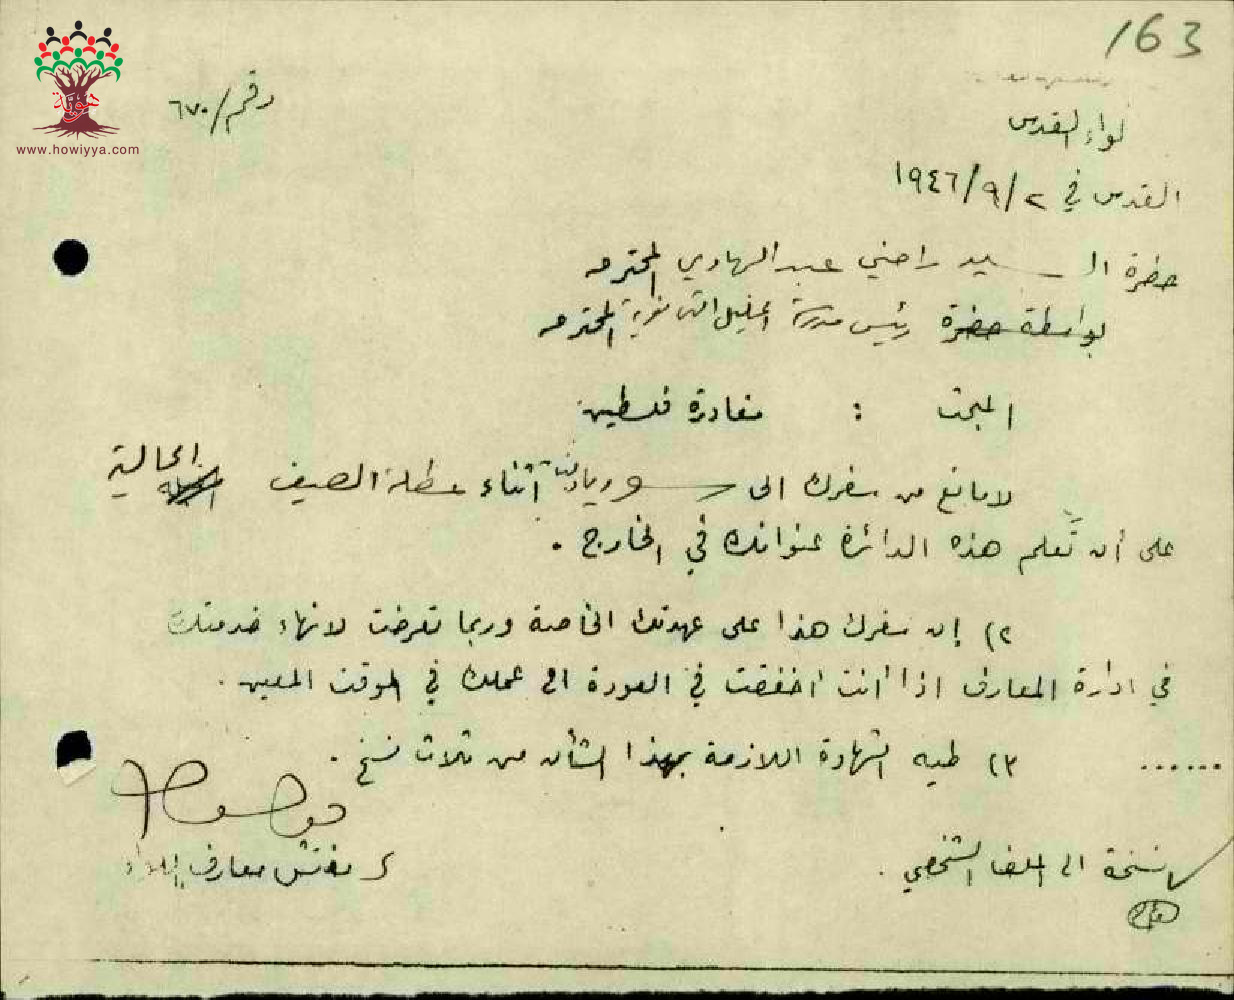 163
هوية
www.howiyya.com
رقم/٦٧٠
لواء القدس
القدس في ٢/٩/١٩٤٦
حضرة السيد راضي عبد الهادي المحترم
بواسطة حضرة رئيس مدرسة الخليل الثانوية المحترم
المبحث : مغادرة فلسطين
لا مانع من سفرك الى سوريا أثناء عطلة الصيف الحالية
على أن تُعلم هذه الدائرة عنوانك في الخارج .
٢) إن سفرك هذا على عهدتك الخاصة وربما تعرضت لانهاء خدمتك
في ادارة المعارف اذا أنت أخفقت في العودة الى عملك في الوقت المعين .
...... ٣) طيه الشهادة اللازمة بهذا الشأن من ثلاث نسخ .
مفتش معارف اللواء
نسخة الى الملف الشخصي .